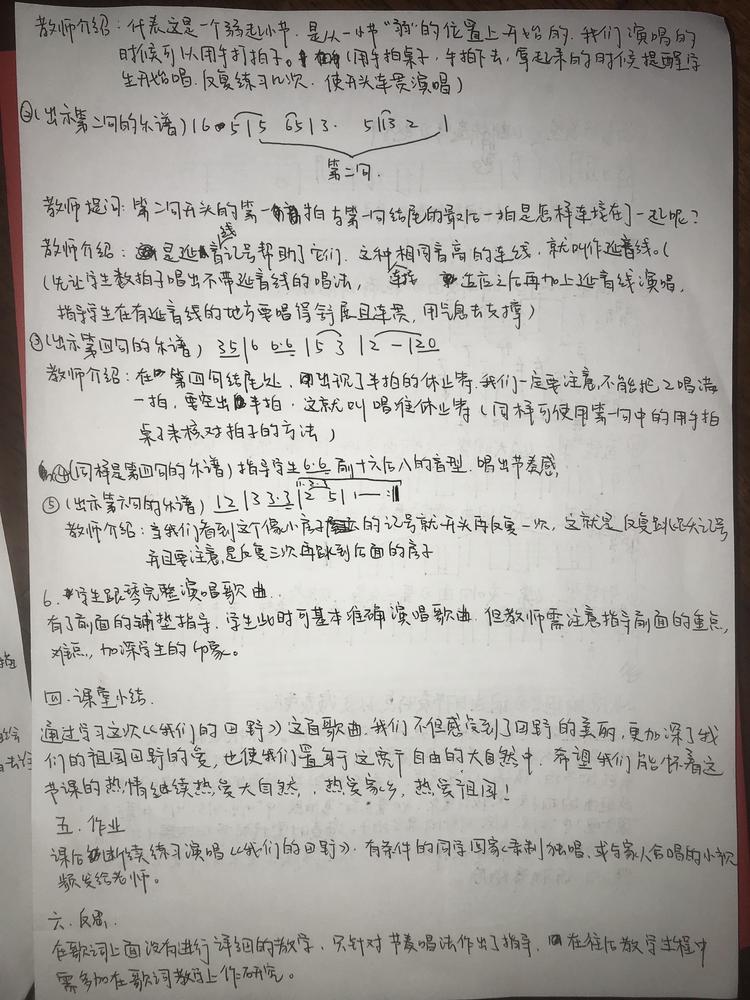 教师介绍：代表这是一个弱起小节。是从一小节“弱”的位置上开始的。我们演唱的
时候可以用手打拍子。（用手拍桌子，手拍下去，拿起来的时候提醒学
生开始唱，反复练习几次，使开头连贯演唱）
②（出示第二句的乐谱）16 5|5 65|3· 5|132 |
第二句.
教师提问：第二句开头的第一拍与第一句结尾的最后一拍是怎样连接在了一起呢？
教师介绍：是延音线记号帮助了它们。这种相同音高的连线，就叫作延音线。（
（先让学生数拍子唱出不带延音线的唱法，连接 适应之后再加上延音线演唱，
指导学生在有延音线的地方要唱得舒展且连贯，用气息去支撑）
③（出示第四句的乐谱）35|6 6·6|5 3|2 -|20
教师介绍：在第四句结尾处，出现了半拍的休止符。我们一定要注意，不能把2唱满
一拍，要空出半拍。这就叫唱准休止符（同样可使用第一句中的用手拍
桌子来核对拍子的方法）
④（同样是第四句的乐谱）指导学生6·6前十六后八的音型，唱出节奏感
⑤（出示第六句的乐谱）12|33·3|2 5|1—:||
教师介绍：当我们看到这个像小房子的记号就开头再反复一次，这就是反复跳跃记号
并且要注意，是反复三次再跳到后面的房子
6.学生跟琴完整演唱歌曲.
有了前面的铺垫指导，学生此时可基本准确演唱歌曲，但教师需注意指导前面的重点，
难点，加深学生的印象。
四.课堂小结.
通过学习这次《我们的田野》这首歌曲，我们不但感受到了田野的美丽，更加深了我
们的祖国田野的爱，也使我们置身于这宽广自由的大自然中，希望我们能怀着这
节课的热情继续热爱大自然，热爱家乡，热爱祖国！
五.作业
课后继续练习演唱《我们的田野》，有条件的同学回家录制独唱，或与家人合唱的小视
频发给老师。
六.反思.
在歌词上面没有进行详细的教学，只针对节奏唱法作出了指导，在往后教学过程中
需多加在歌词教学上作研究。